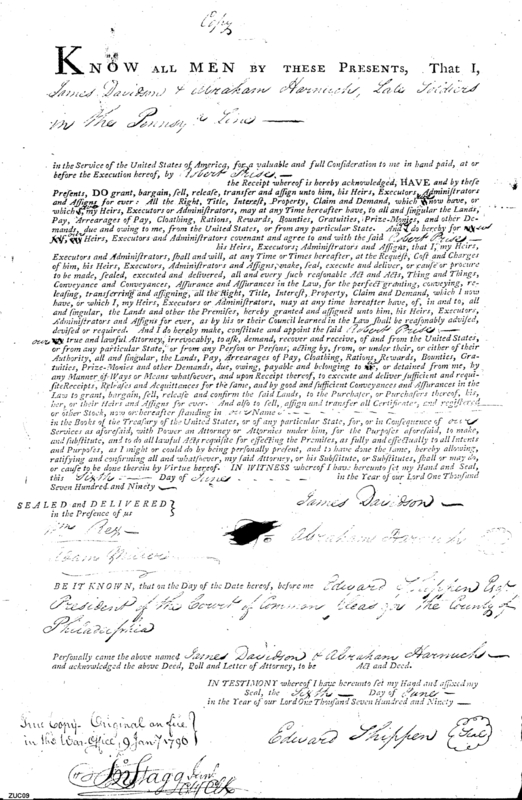 Copy
KNOW ALL MEN BY THESE PRESENTS, That I,
James Davidson & Abraham Harnuch, Late Soldiers
in the Pennsy Line
in the Service of the United States of America, for a valuable and full Consideration to me in hand paid, at or
before the Execution hereof, by Robert Prise
the Receipt whereof is hereby acknowledged, HAVE and by these
Presents, DO grant, bargain, sell, release, transfer and assign unto him, his Heirs, Executors, Administrators
and Assigns for ever: All the Right, Title, Interest, Property, Claim and Demand, which now have, or
which I, my Heirs, Executors or Administrators, may at any Time hereafter have, to all and singular the Lands,
Pay, Arrearages of Pay, Clothing, Rations, Rewards, Bounties, Gratuities, Prize-Monies, and other De-
mands, due and owing to me, from the United States, or from any particular State. And do hereby for
Heirs, Executors and Administrators covenant and agree to and with the said Robert Prise
his Heirs, Executors, Administrators and Assigns, that I, my Heirs,
Executors and Administrators, shall and will, at any Time or Times hereafter, at the Request, Cost and Charges
of him, his Heirs, Executors, Administrators and Assigns, make, seal, execute and deliver, or cause or procure
to be made, sealed, executed and delivered, all and every such reasonable Act and Acts, Thing and Things,
Conveyance and Conveyances, Assurance and Assurances in the Law, for the perfect granting, conveying, re-
leasing, transferring and assigning, all the Right, Title, Interest, Property, Claim and Demand, which I now
have, or which I, my Heirs, Executors or Administrators, may at any time hereafter have, of, in and to, all
and singular, the Lands and other the Premises, hereby granted and assigned unto him, his Heirs, Executors,
Administrators and Assigns for ever, as by his or their Council learned in the Law shall be reasonably advised,
devised or required. And I do hereby make, constitute and appoint the said Robert Prise
our true and lawful Attorney, irrevocably, to ask, demand, recover and receive, of and from the United States,
or from any particular State, or from any Person or Persons, acting by, from, or under their, or either of their
Authority, all and singular, the Lands, Pay, Arrearages of Pay, Cloathing, Rations, Rewards, Bounties, Gra-
tuities, Prize-Monies and other Demands, due, owing, payable and belonging to, or detained from me, by
any Manner of Ways or Means whatsoever, and upon Receipt thereof, to execute and deliver sufficient and requi-
site Receipts, Releases and Acquittances for the same, and by good and sufficient Conveyances and Assurances in the
Law to grant, bargain, sell, release and confirm the said Lands, to the Purchaser, or Purchasers thereof, his,
her, or their Heirs and Assigns for ever. And also to sell, assign and transfer all Certificates, and registered
or other Stock, now or hereafter standing in our Name
in the Books of the Treasury of the United States, or of any particular State, for, or in Consequence of our
Services as aforesaid, with Power an Attorney or Attornies under him, for the Purposes aforesaid, to make,
and substitute, and to do all lawful Acts requisite for effecting the Premises, as fully and effectually to all Intents
and Purposes, as I might or could do by being personally present, and to have done the same, hereby allowing,
ratifying and confirming all and whatsoever, my said Attorney, or his Substitute, or Substitutes, shall or may do,
or cause to be done therein by Virtue hereof. IN WITNESS whereof I have hereunto set my Hand and Seal,
this Sixth Day of June in the Year of our Lord One Thousand
Seven Hundred and Ninety
SEALED and DELIVERED
in the Presence of us
James Davidson
Wm Rex
Abraham Harnuch
BE IT KNOWN, that on the Day of the Date hereof, before me Edward Shippen Esqr
President of the Court of Common Pleas for the County of
Philadelphia
Personally came the above named James Davidson & Abraham Harnuch
and acknowledged the above Deed, Poll and Letter of Attorney, to be Act and Deed.
IN TESTIMONY whereof I have hereunto set my Hand and affixed my
Seal, the Sixth Day of June
in the Year of our Lord One Thousand Seven Hundred and Ninety
Edward Shippen Seal
True Copy. Original on file
in the War Office, 9 Jany 1796
Jn Stagg Junr
ZUC09